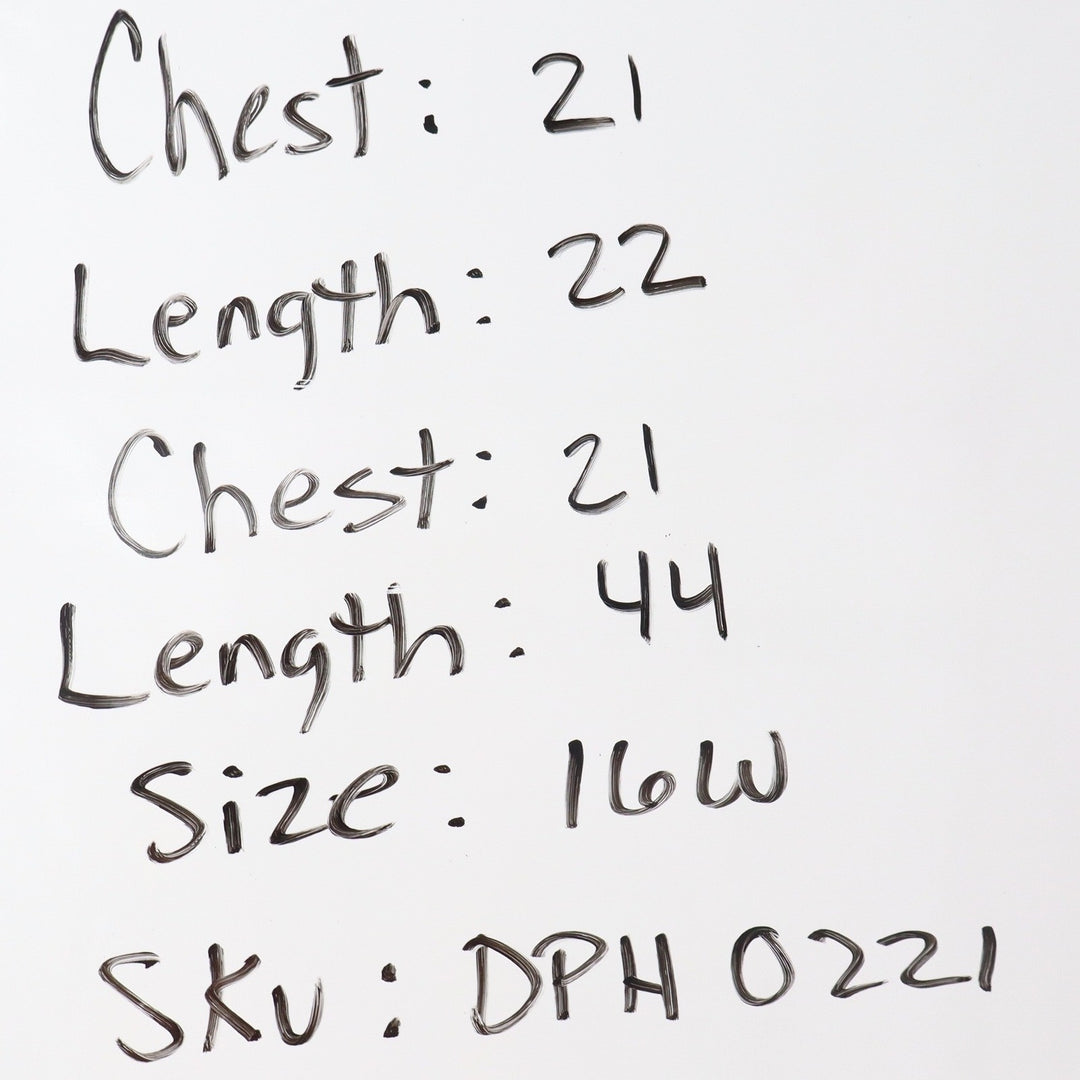 Chest: 21
Length: 22
Chest: 21
Length: 44
Size: 16W
SKU: DPH 0221